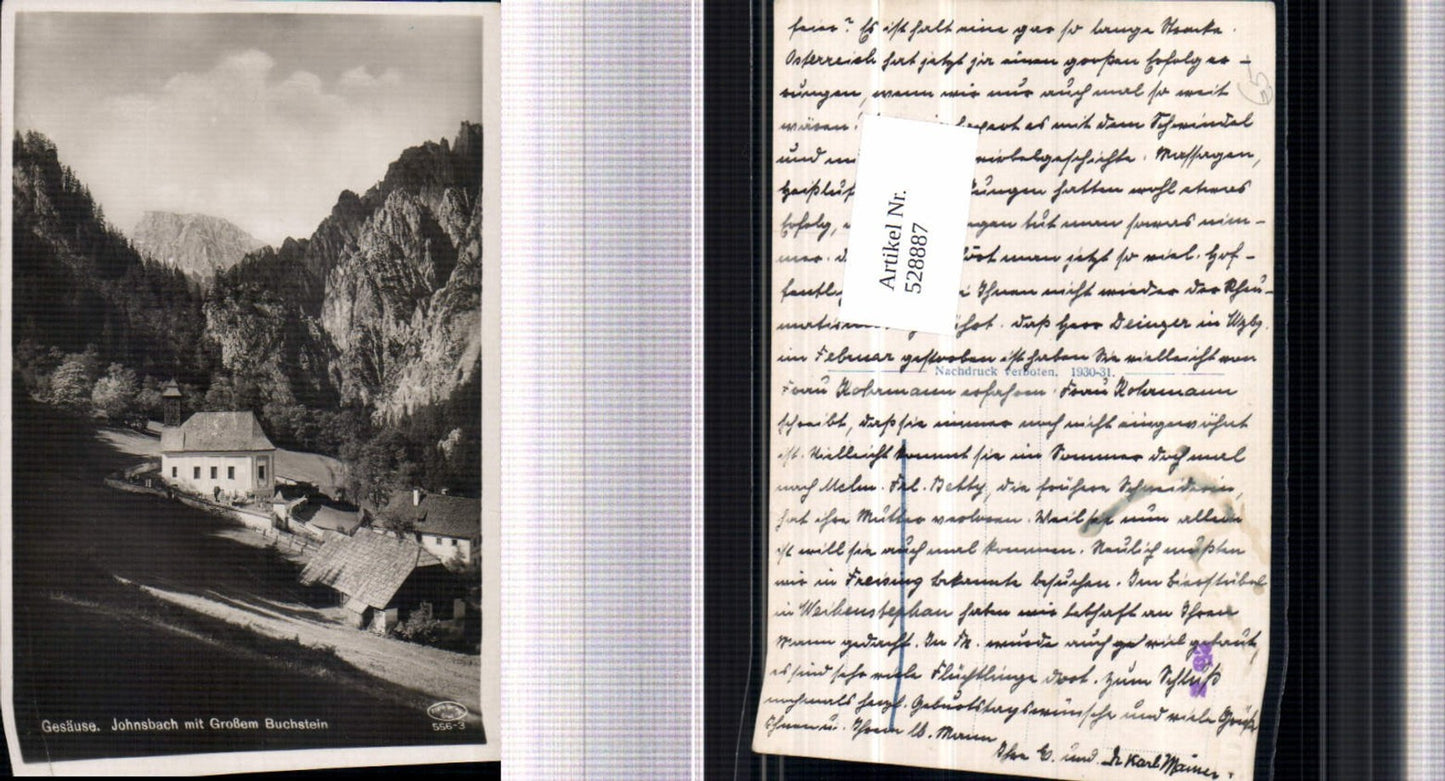 Gesäuse. Johnsbach mit Großem Buchstein
556-3
feier? Es ist halt eine gar so lange Strecke.
Österreich hat jetzt ja einen großen Erfolg er-
rungen, wenn wir nur auch mal so weit
wären! es mit dem Schwindel
und Wirbelgeschichte. Massagen,
Heißluf hatten wohl etwas
Erfolg, tut man sowas nim-
mer. hört man jetzt so viel. Hof-
fentl. Ihnen nicht wieder der Rheu-
matis Daß Herr Deinzer in Wzbg.
im Februar gestorben ist haben Sie vielleicht von
Nachdruck verboten. 1930-31.
Frau Rohrmann erfahren. Frau Rohrmann
schreibt, daß sie immer noch nicht eingewöhnt
ist. Vielleicht kommt sie im Sommer doch mal
nach Mchn. Frl. Betty, die frühere Schneiderin,
hat ihre Mutter verloren. Weil sie nun allein
ist will sie auch mal kommen. Neulich mußten
wir in Freising Bekannte besuchen. Im Bierstüberl
in Weihenstephan haben wir lebhaft an Ihren
Mann gedacht. In Fr. wurde auch viel gebaut,
es sind sehr viele Flüchtlinge dort. Zum Schluß
nochmals herzl. Geburtstagswünsche und viele Grüße
Ihnen u. Ihrem lb. Mann
Ihre E. und Dr Karl Mainer.
Artikel Nr.
528887